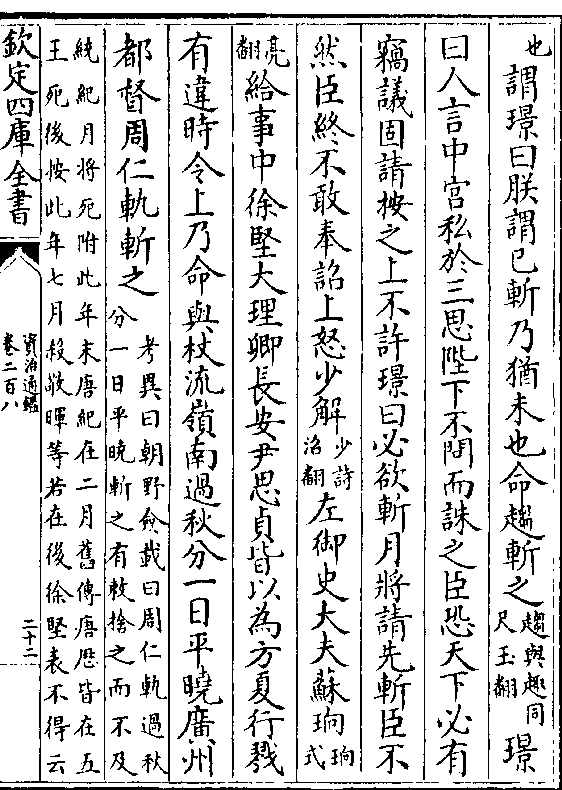 也謂璟曰朕謂已斬乃猶未也命趨斬之趨與趣同尺玉翻璟
曰人言中宮私於三思陛下不問而誅之臣恐天下必有
竊議固請按之上不許璟曰必欲斬月將請先斬臣不
然臣終不敢奉詔上怒少解少詩沼翻左御史大夫蘇珦珦式
亮翻給事中徐堅大理卿長安尹思貞皆以為方夏行戮
有違時令上乃命與杖流嶺南過秋分一日平曉廣州
都督周仁軌斬之考異曰朝野僉載曰周仁軌過秋
分一日平曉斬之有敕捨之而不及
統紀月將死附此年末唐紀在二月舊傳唐厯皆在五
王死後按此年七月殺敬暉等若在後徐堅表不得云
欽定四庫全書
資治通鑑
卷二百八
二十二